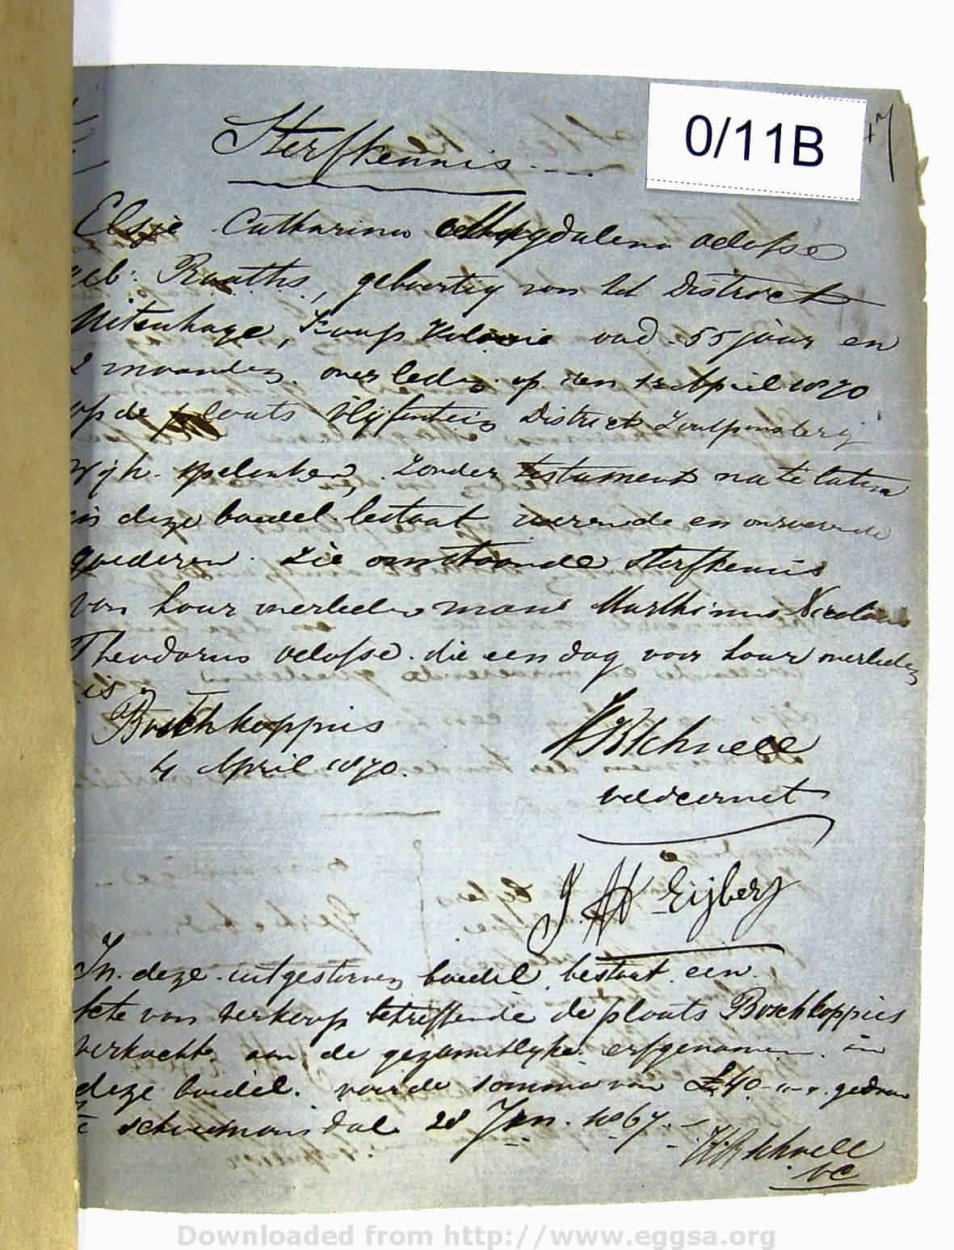 0/11B
47
Sterfkennis
Elsje Catharina Magdalena Delosse
geb: Rauths, geboortig van het District
Uitenhage, Kaaps Kolonie oud 55 jaar en
2 maanden overleden op den April 1870
op de plaats Vlijfontein District Zoutpansberg
wyk Spelonken, zonder testament na te laten
in deze boedel bestaat roerende en onroerende
goederen. Zie omstaande sterfkennis
van haar overleden man Marthinus Nicolaas
Theodorus Delosse die een dag voor haar overleden
is
Boschkoppies
4 April 1870.
Schnell
veldcornet
J. H. Eijberg
In deze uitgestorven boedel bestaat een
Acte van verkoop betreffende de plaats Boschkoppies
verkocht aan de gezamentlyke erfgenamen in
deze boedel voor de somma van £40
Schoemansdal 28 Jan. 1867.
Schnell
VC
Downloaded from http://www.eggsa.org